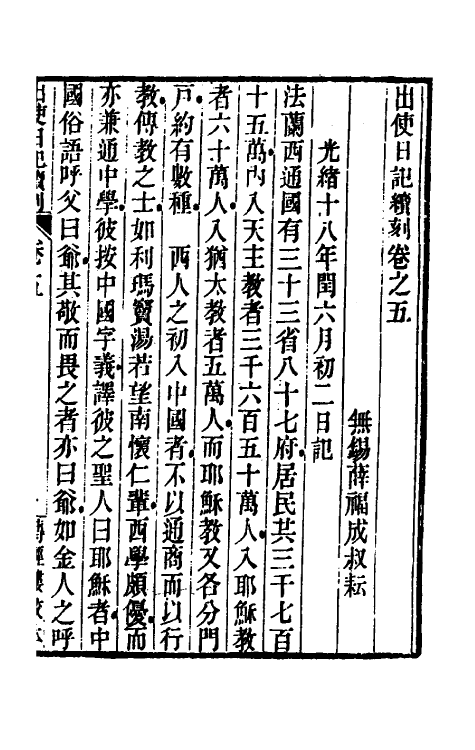 出使日記續刻卷之五
無錫薛福成叔耘
光緒十八年閏六月初二日記
法蘭西通國有三十三省八十七府居民共三千七百
十五萬內入天主教者三千六百五十萬人入耶穌教
者六十萬人入猶太教者五萬人而耶穌教又各分門
戸約有數種 西人之初入中國者不以通商而以行
教傳教之士如利瑪竇湯若望南懷仁輩西學頗優而
亦兼通中學彼按中國字義譯彼之聖人曰耶穌者中
國俗語呼父曰爺其敬而畏之者亦曰爺如金人之呼
出使日記續刻 卷之五 一